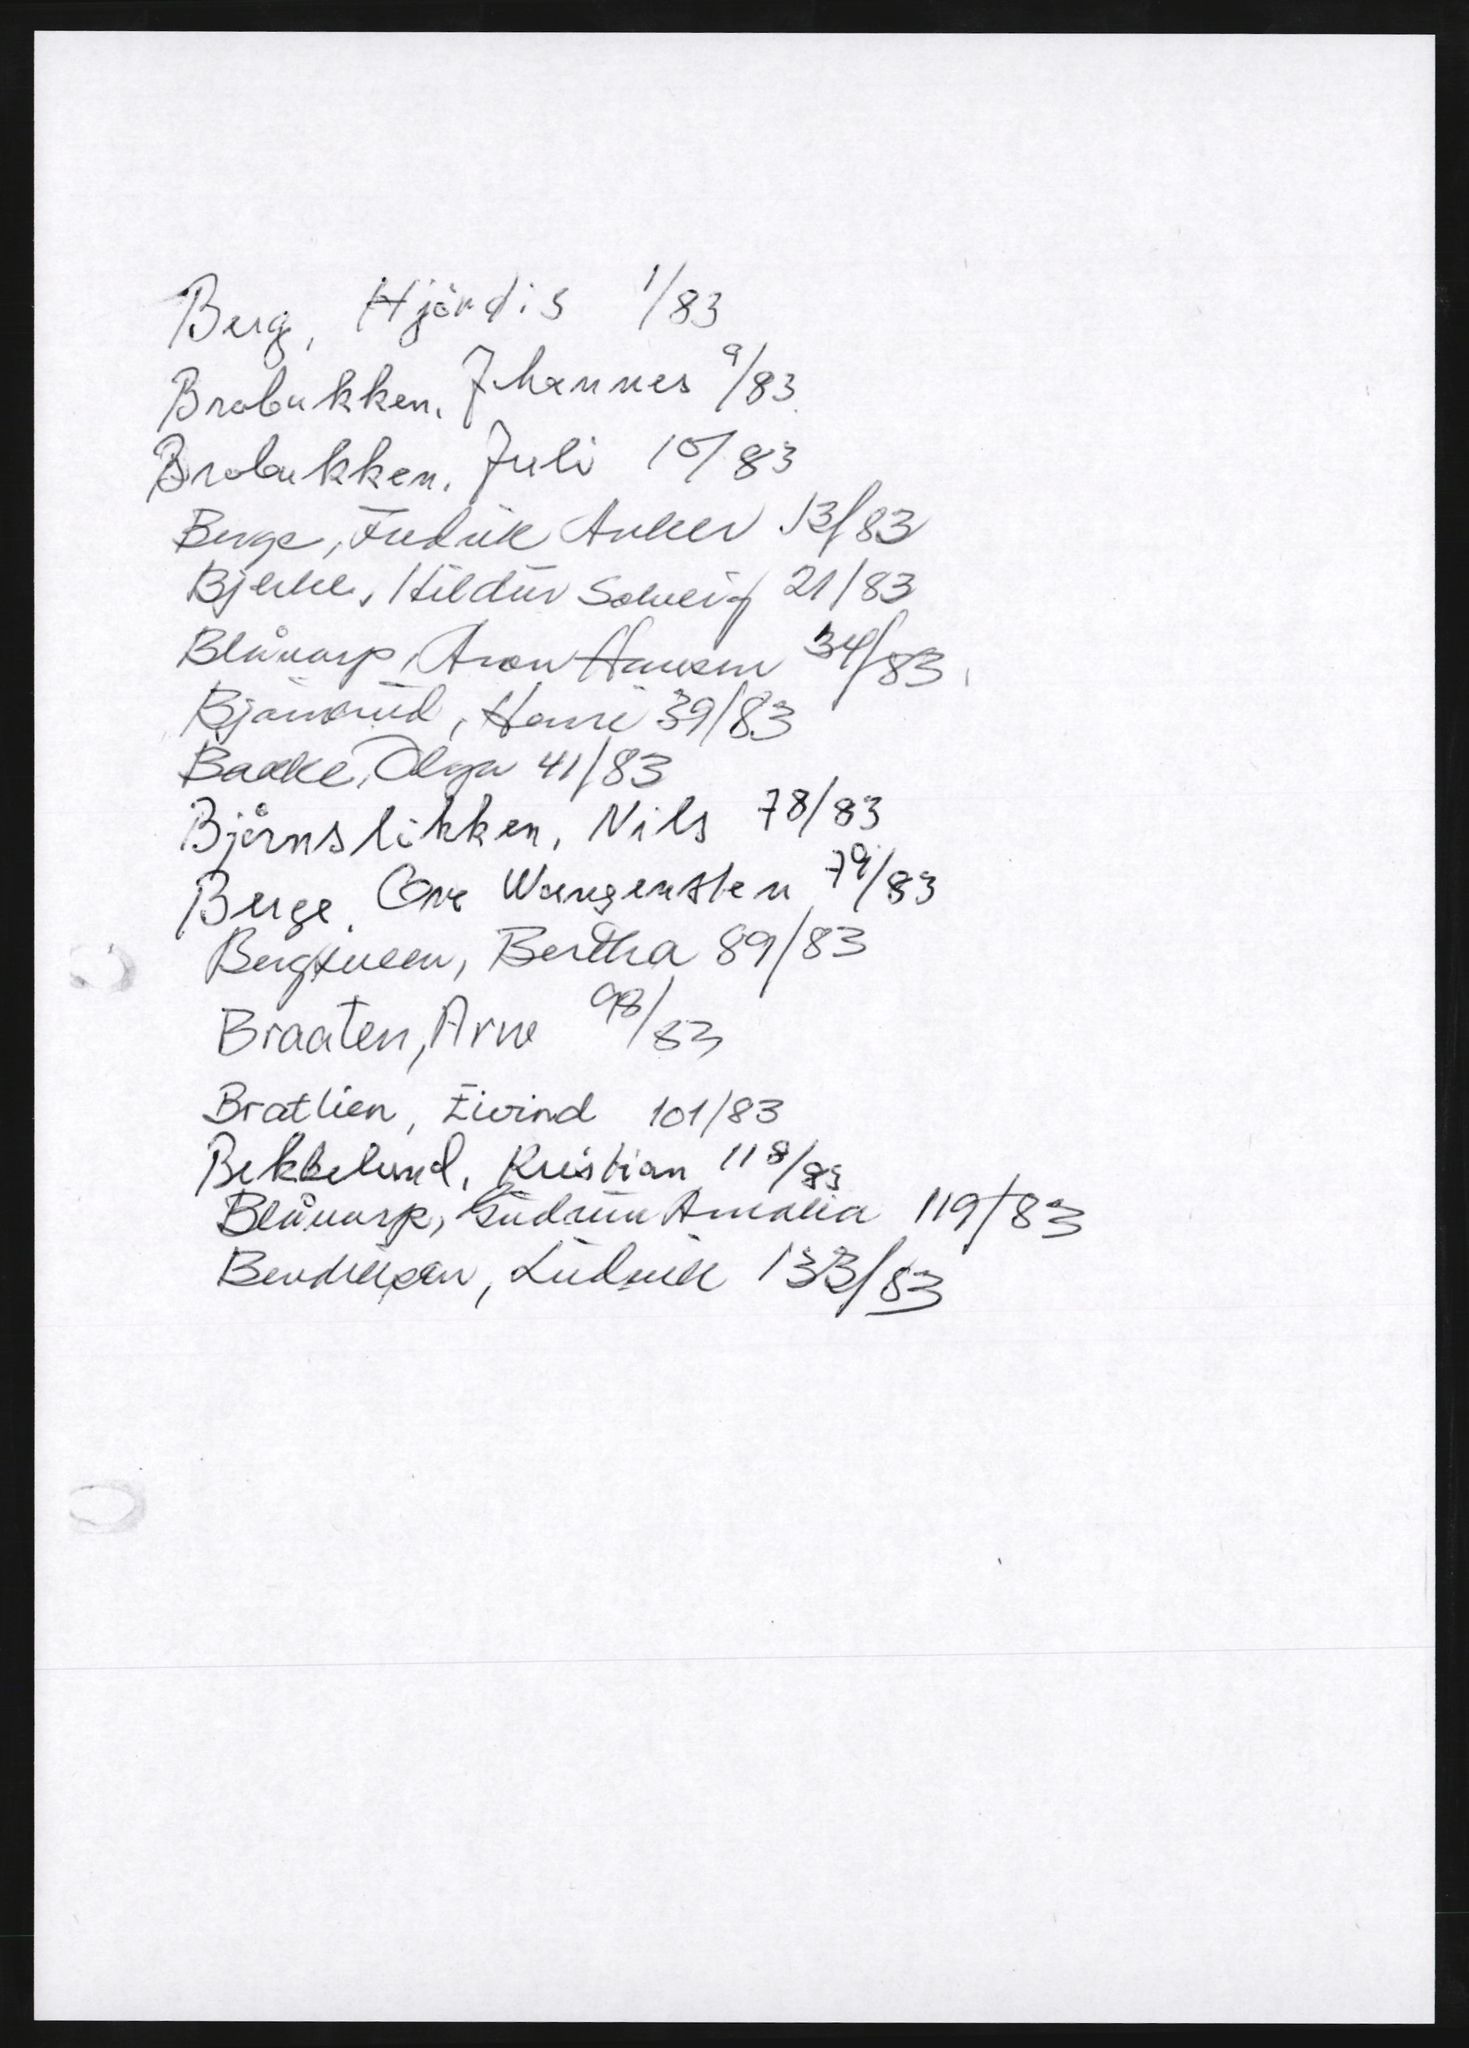 Berg, Hjördis 1/83
Brobakken, Johannes 9/83
Brobakken, Juli 10/83
Berge, Fredrik Anker 13/83
Bjerke, Hildur Solveig 21/83
Blåvarp, Aron Hansen 34/83
39/83
Bakke, Olga 41/83
Björnslikken, Nils 78/83
Berge, Ove Wangensten 79/83
Bertha 89/83
Braaten, Arne 98/83
Bratlien, Eivind 101/83
Bekkelund, Kristian 118/83
Blåvarp, Gudrun Amalia 119/83
Bendiksen, Ludvik 133/83